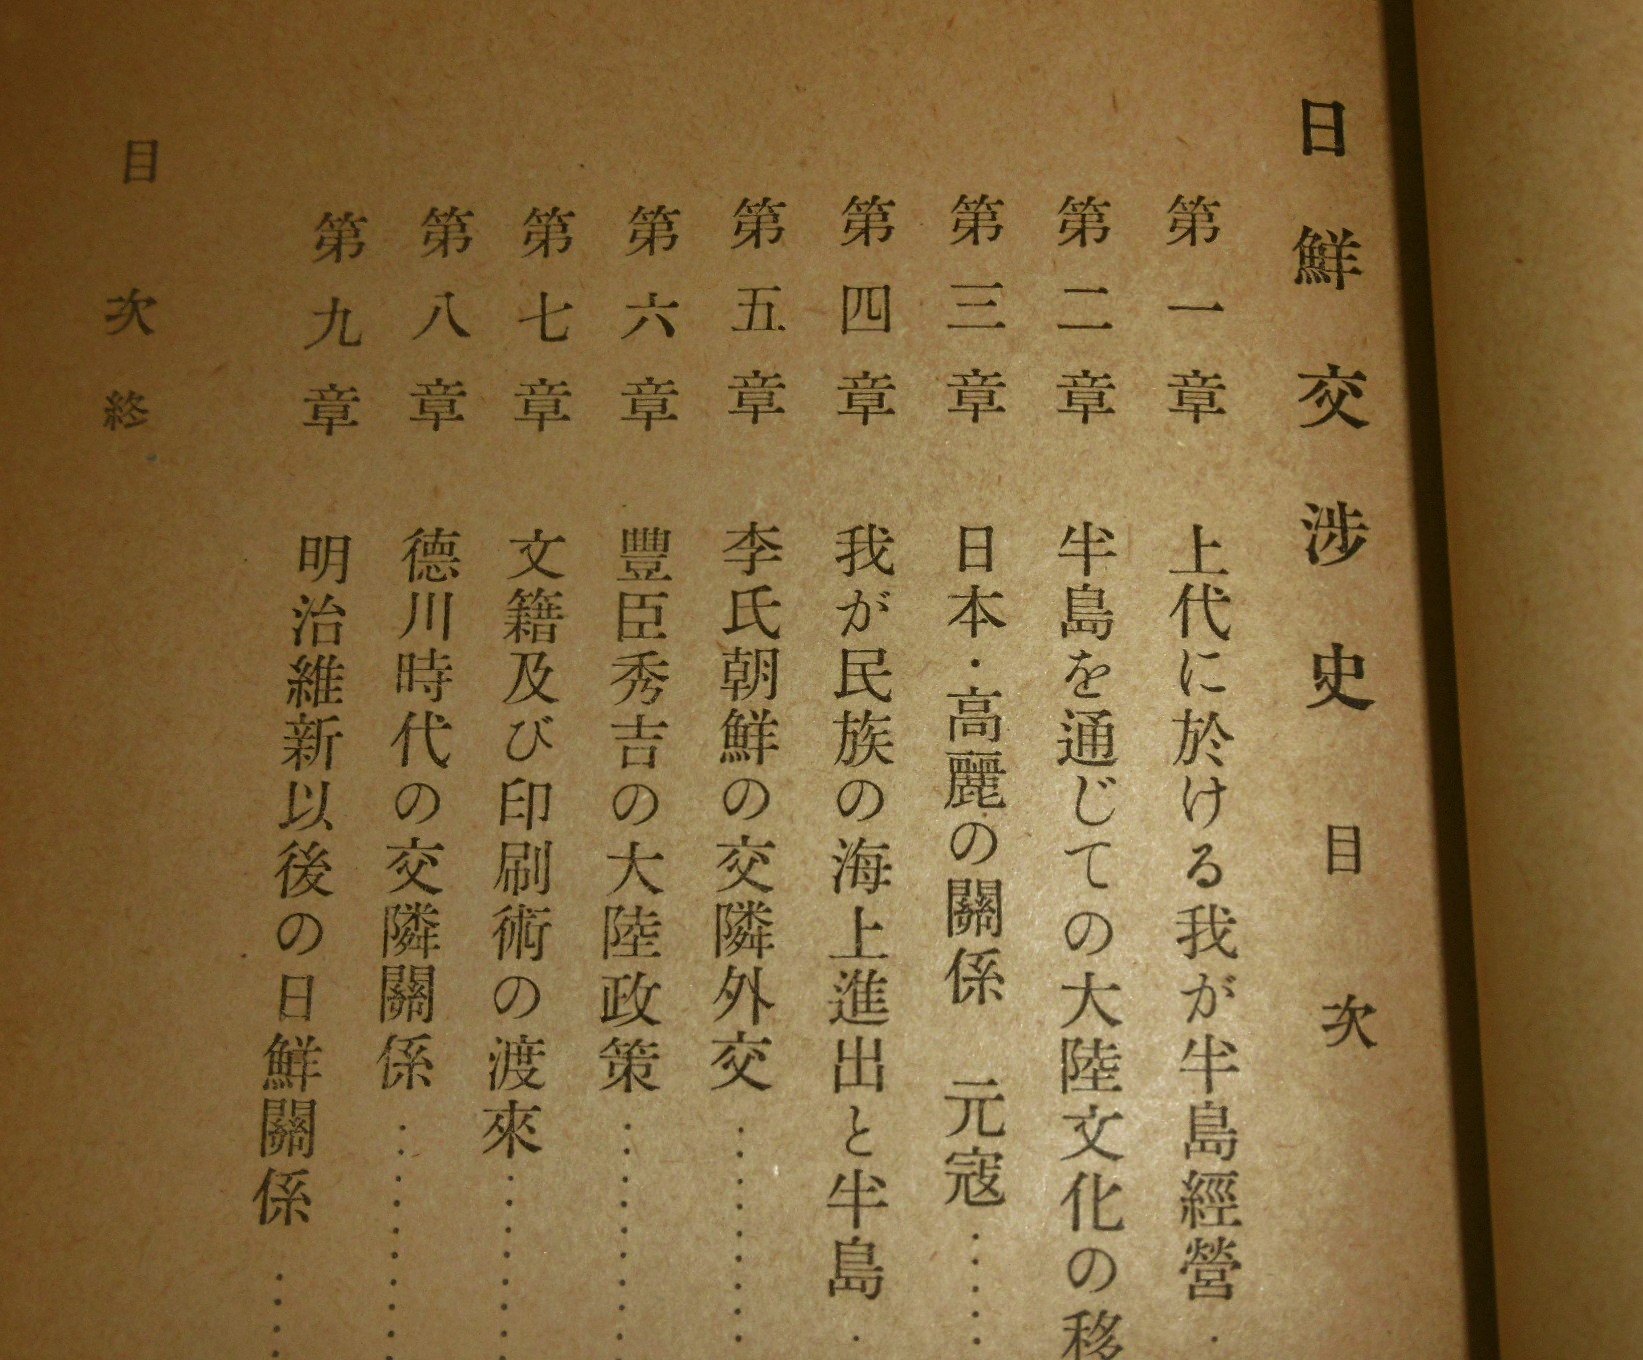 日鮮交涉史 目次
第一章 上代に於ける我が半島經營
第二章 半島を通じての大陸文化の移
第三章 日本・高麗の關係 元寇
第四章 我が民族の海上進出と半島
第五章 李氏朝鮮の交隣外交
第六章 豐臣秀吉の大陸政策
第七章 文籍及び印刷術の渡來
第八章 德川時代の交隣關係
第九章 明治維新以後の日鮮關係
目次終